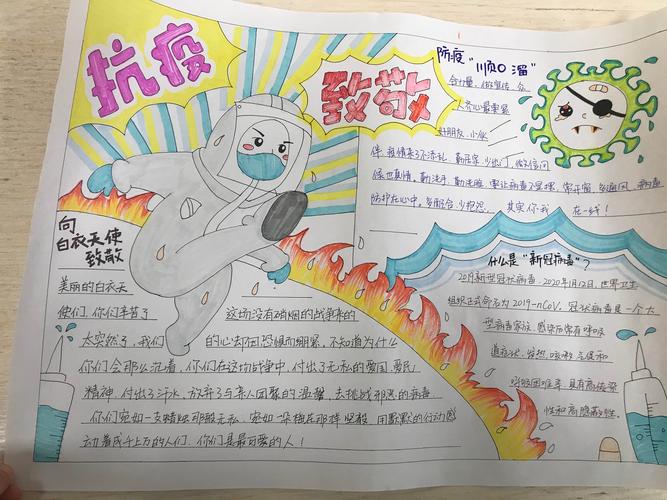 抗疫
致敬
防疫“顺口溜”
合力量,做宣传,众
人齐心最重要
好朋友,小伙
伴,疫情来了不添乱,勤居家,少出门,做信问
候也真情。勤洗手,勤洗脸,要让病毒,常开窗,多通风,病毒
防护在心中。多配合,少抱怨, 其实你我 在一线!
向
白衣天使
致敬
美丽的白衣天
使们,你们辛苦了
这场没有硝烟的战争来的
太突然了,我们 的心去何恐惧而绷紧,不知道为什么
你们会那么沉着,你们在这场战争中,付出了无私的爱国,爱民
精神,付出了汗水,放弃了与亲人团聚的温馨,去挑战邪恶的病毒
你们宛如一支蜡烛那般无私,宛如一朵梅花那样坚毅,用默默的行动感
动着成千上万的人们,你们是最可爱的人!
什么是“新冠病毒”?
2019新型冠状病毒,2020年1月12日,世界卫生
组织正式命名为2019-nCoV,冠状病毒是一个大
型病毒家族,感染后常有呼吸
道症状,发热,咳嗽,气促和
呼吸困难等,具有高传染
性和高隐蔽性。